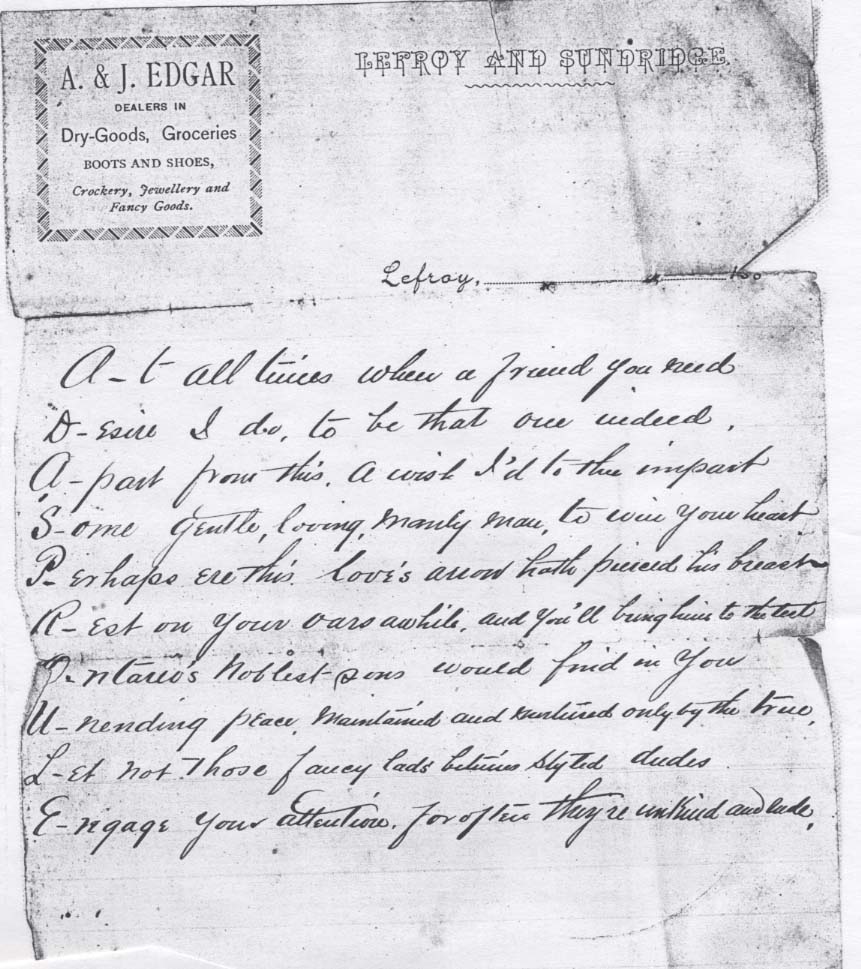 A. & J. EDGAR
DEALERS IN
Dry-Goods, Groceries
BOOTS AND SHOES,
Crockery, Jewellery and
Fancy Goods.
LEFROY AND SUNDRIDGE.
Lefroy,
A-t all times when a friend you need
D-esire I do, to be that one indeed.
A-part from this, a wish I'd to thee impart
S-ome gentle, loving, manly man, to win your heart
P-erhaps ere this love's arrow hath pierced his breast
R-est on your oars awhile, and you'll bring him to the test
O-ntario's noblest sons would find in you
U-nending peace, maintained and nurtured only by the true,
L-et not those fancy lads betimes styled dudes
E-ngage your attention. for often they're unkind and rude.